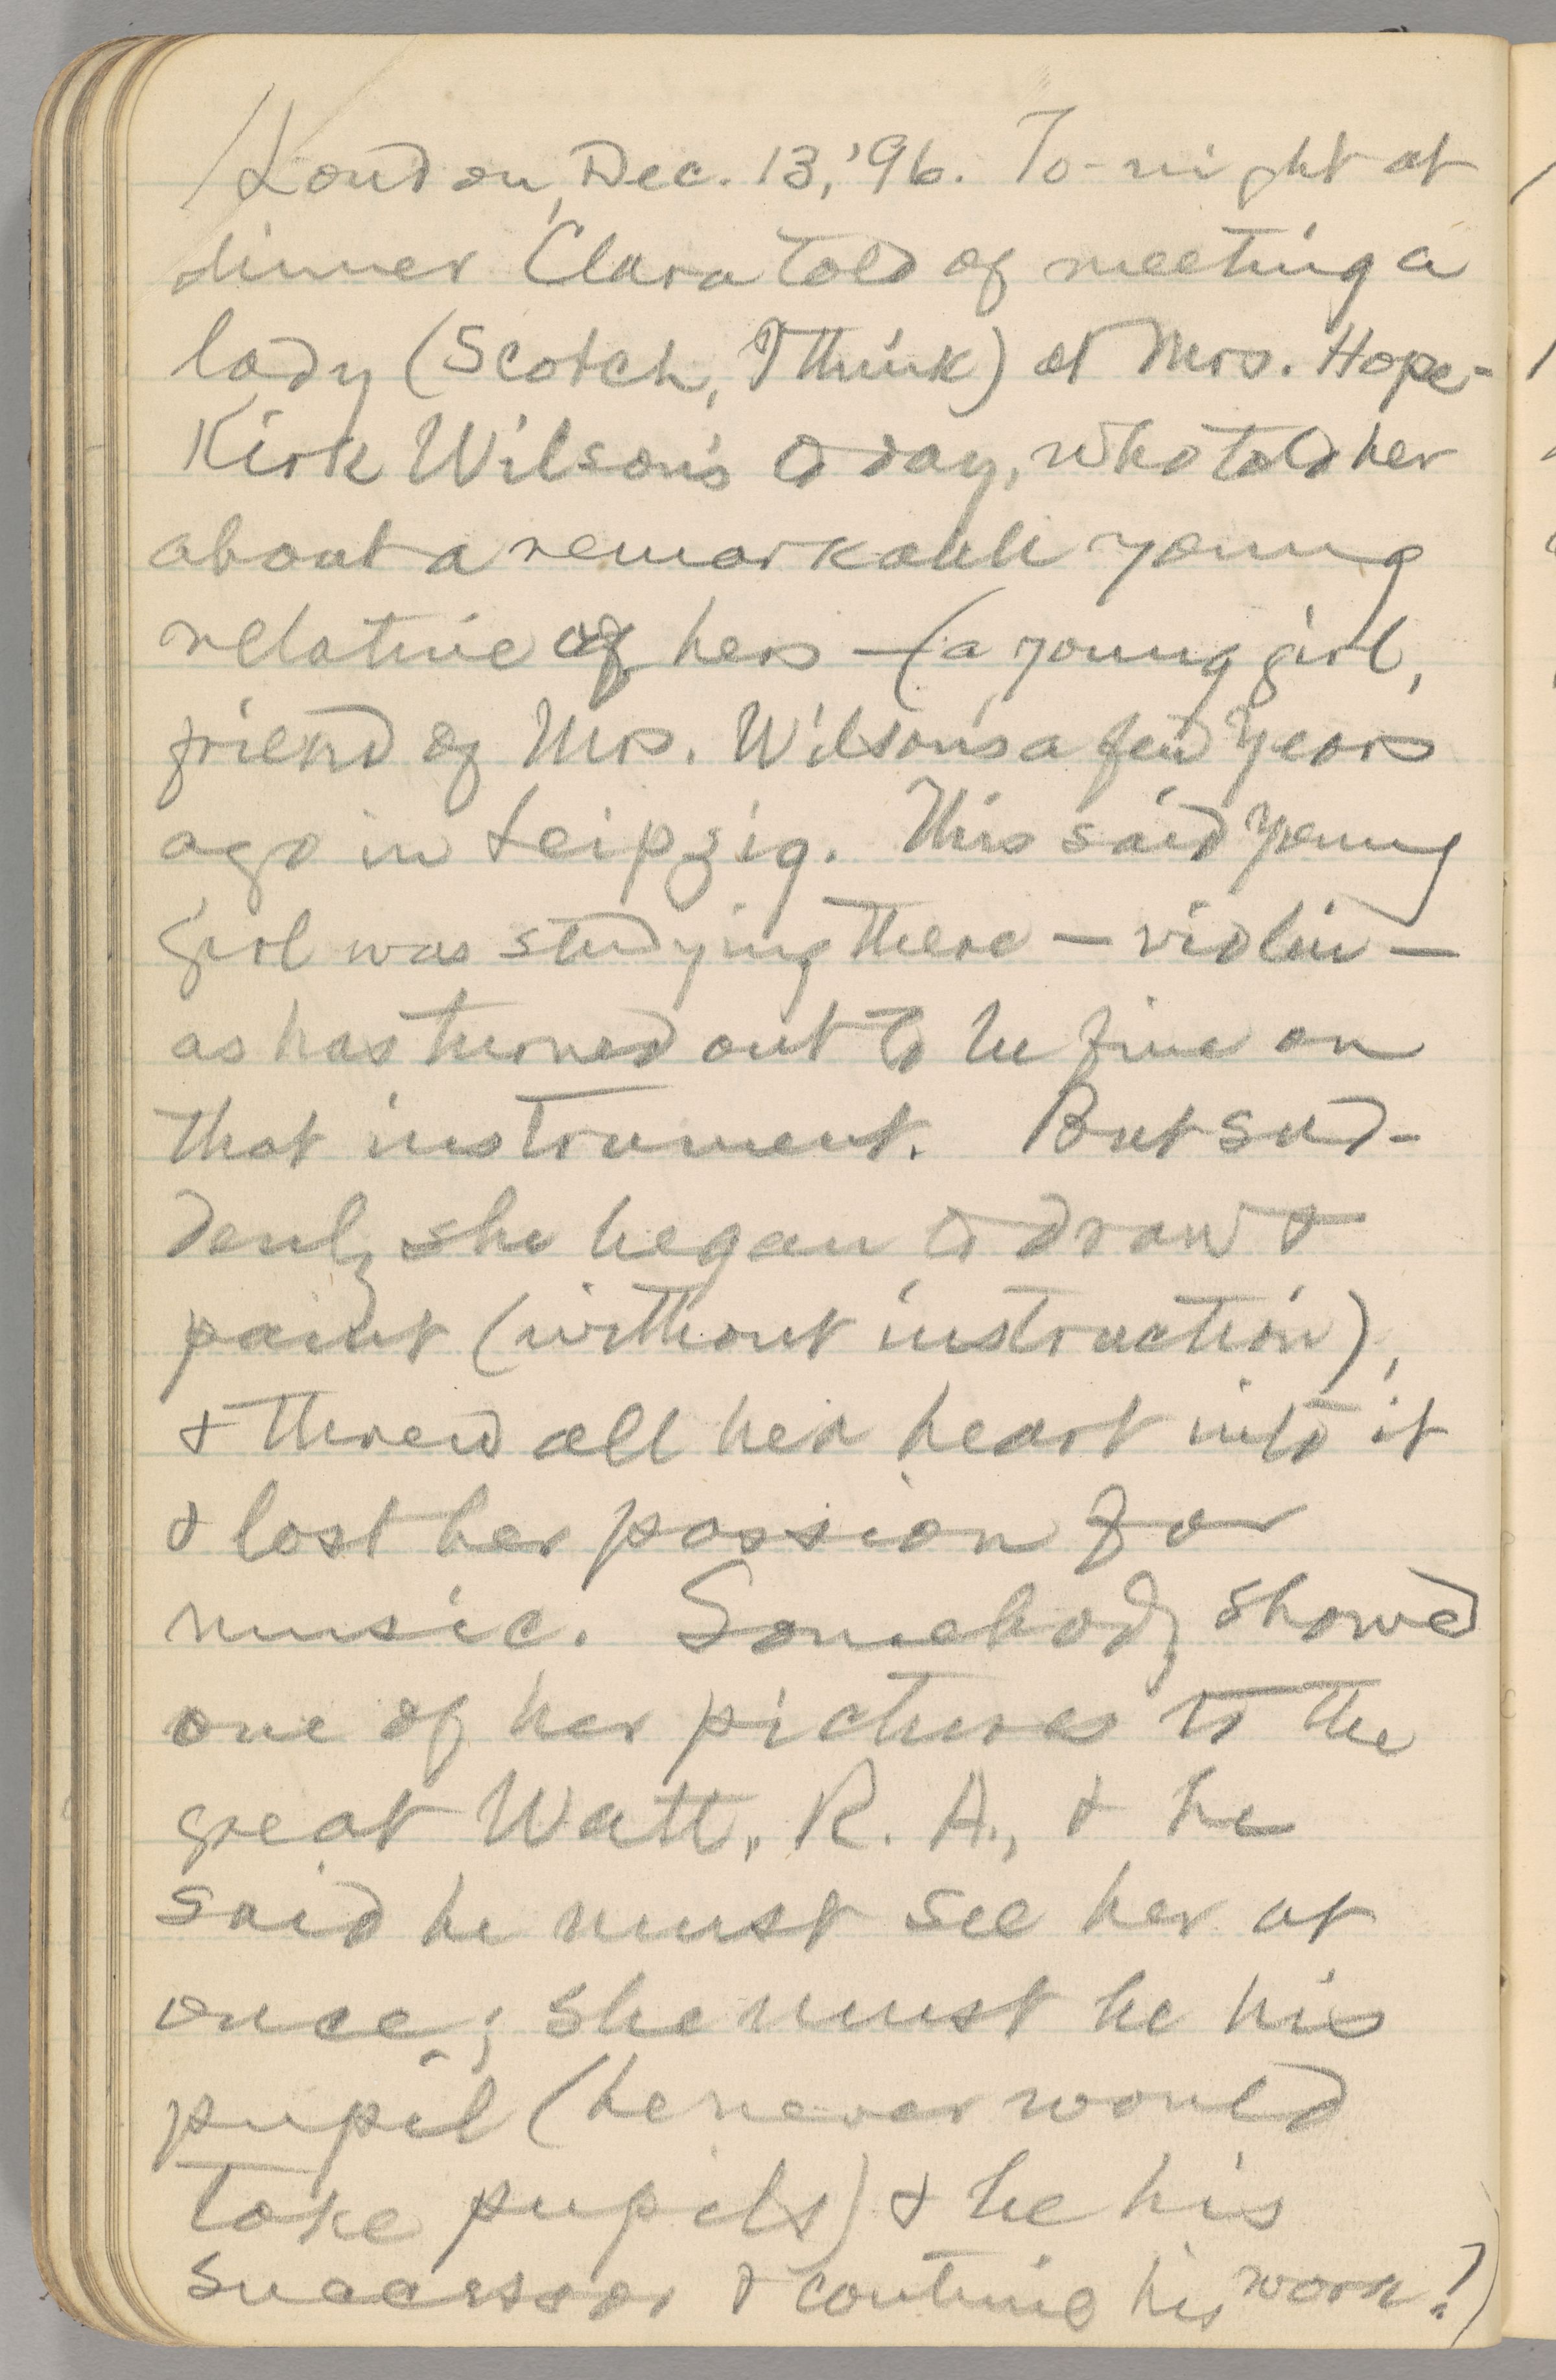 London, Dec. 13, '96. To-night at
dinner Clara told of meeting a
lady (Scotch, I think) at Mrs. Hope-
Kirk Wilson's to day, who told her
about a remarkable young
relative of hers — (a young girl,
friend of Mrs. Wilson's a few years
ago in Leipzig. This said young
girl was studying there — violin —
as has turned out to be fine on
that instrument. But sud-
denly she began to draw &
paint (without instruction),
& threw all her heart into it
& lost her passion for
music. Somebody showed
one of her pictures to the
great Watt, R. A., & he
said he must see her at
once; she must be his
pupil (he never would
take pupils) & be his
successor & continue his work!)